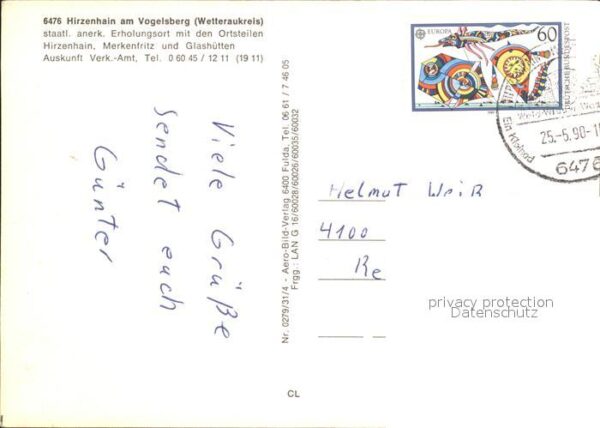 6476 Hirzenhain am Vogelsberg (Wetteraukreis)
staatl. anerk. Erholungsort mit den Ortsteilen
Hirzenhain, Merkenfritz und Glashütten
Auskunft Verk.-Amt, Tel. 0 60 45 / 12 11 (19 11)
Viele Grüße
sendet euch
Günter
Nr. 0279/31/4 - Aero-Bild-Verlag 6400 Fulda, Tel. 06 61 / 7 46 05
Frgg.: LAN G 16/60028/60026/60035/60032
CL
EUROPA
60
DEUTSCHE BUNDESPOST
Ein Kleinod
25.-5.90-1
6476
Helmut Weiß
4100
Re
privacy protection
Datenschutz